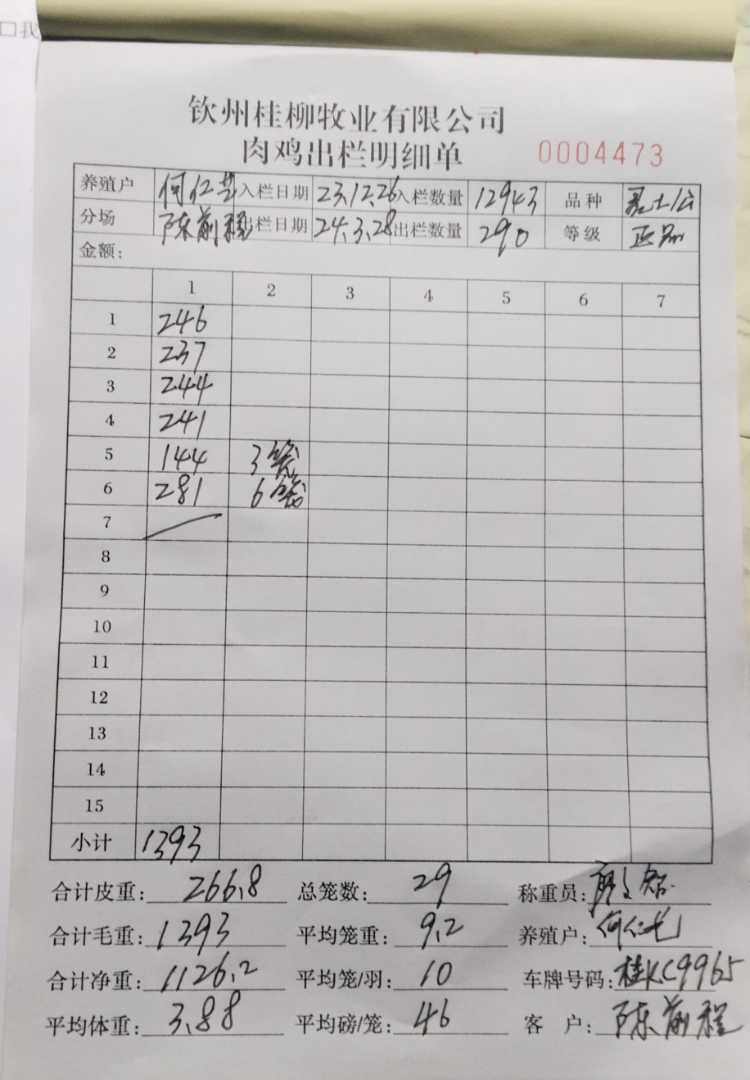 钦州桂柳牧业有限公司
肉鸡出栏明细单 0004473
养殖户 何仁芑 入栏日期 23.12.26 入栏数量 12943 品种 土
分场 陈前程 出栏日期 24.3.28 出栏数量 290 等级 正品
金额:
1 2 3 4 5 6 7
1 246
2 237
3 244
4 241
5 144 3笼
6 281 6笼
7
8
9
10
11
12
13
14
15
小计 1393
合计皮重: 266.8 总笼数: 29 称重员:
合计毛重: 1393 平均笼重: 9.2 养殖户: 何仁
合计净重: 1126.2 平均笼/羽: 10 车牌号码: 桂KC9965
平均体重: 3.88 平均磅/笼: 46 客户: 陈前程